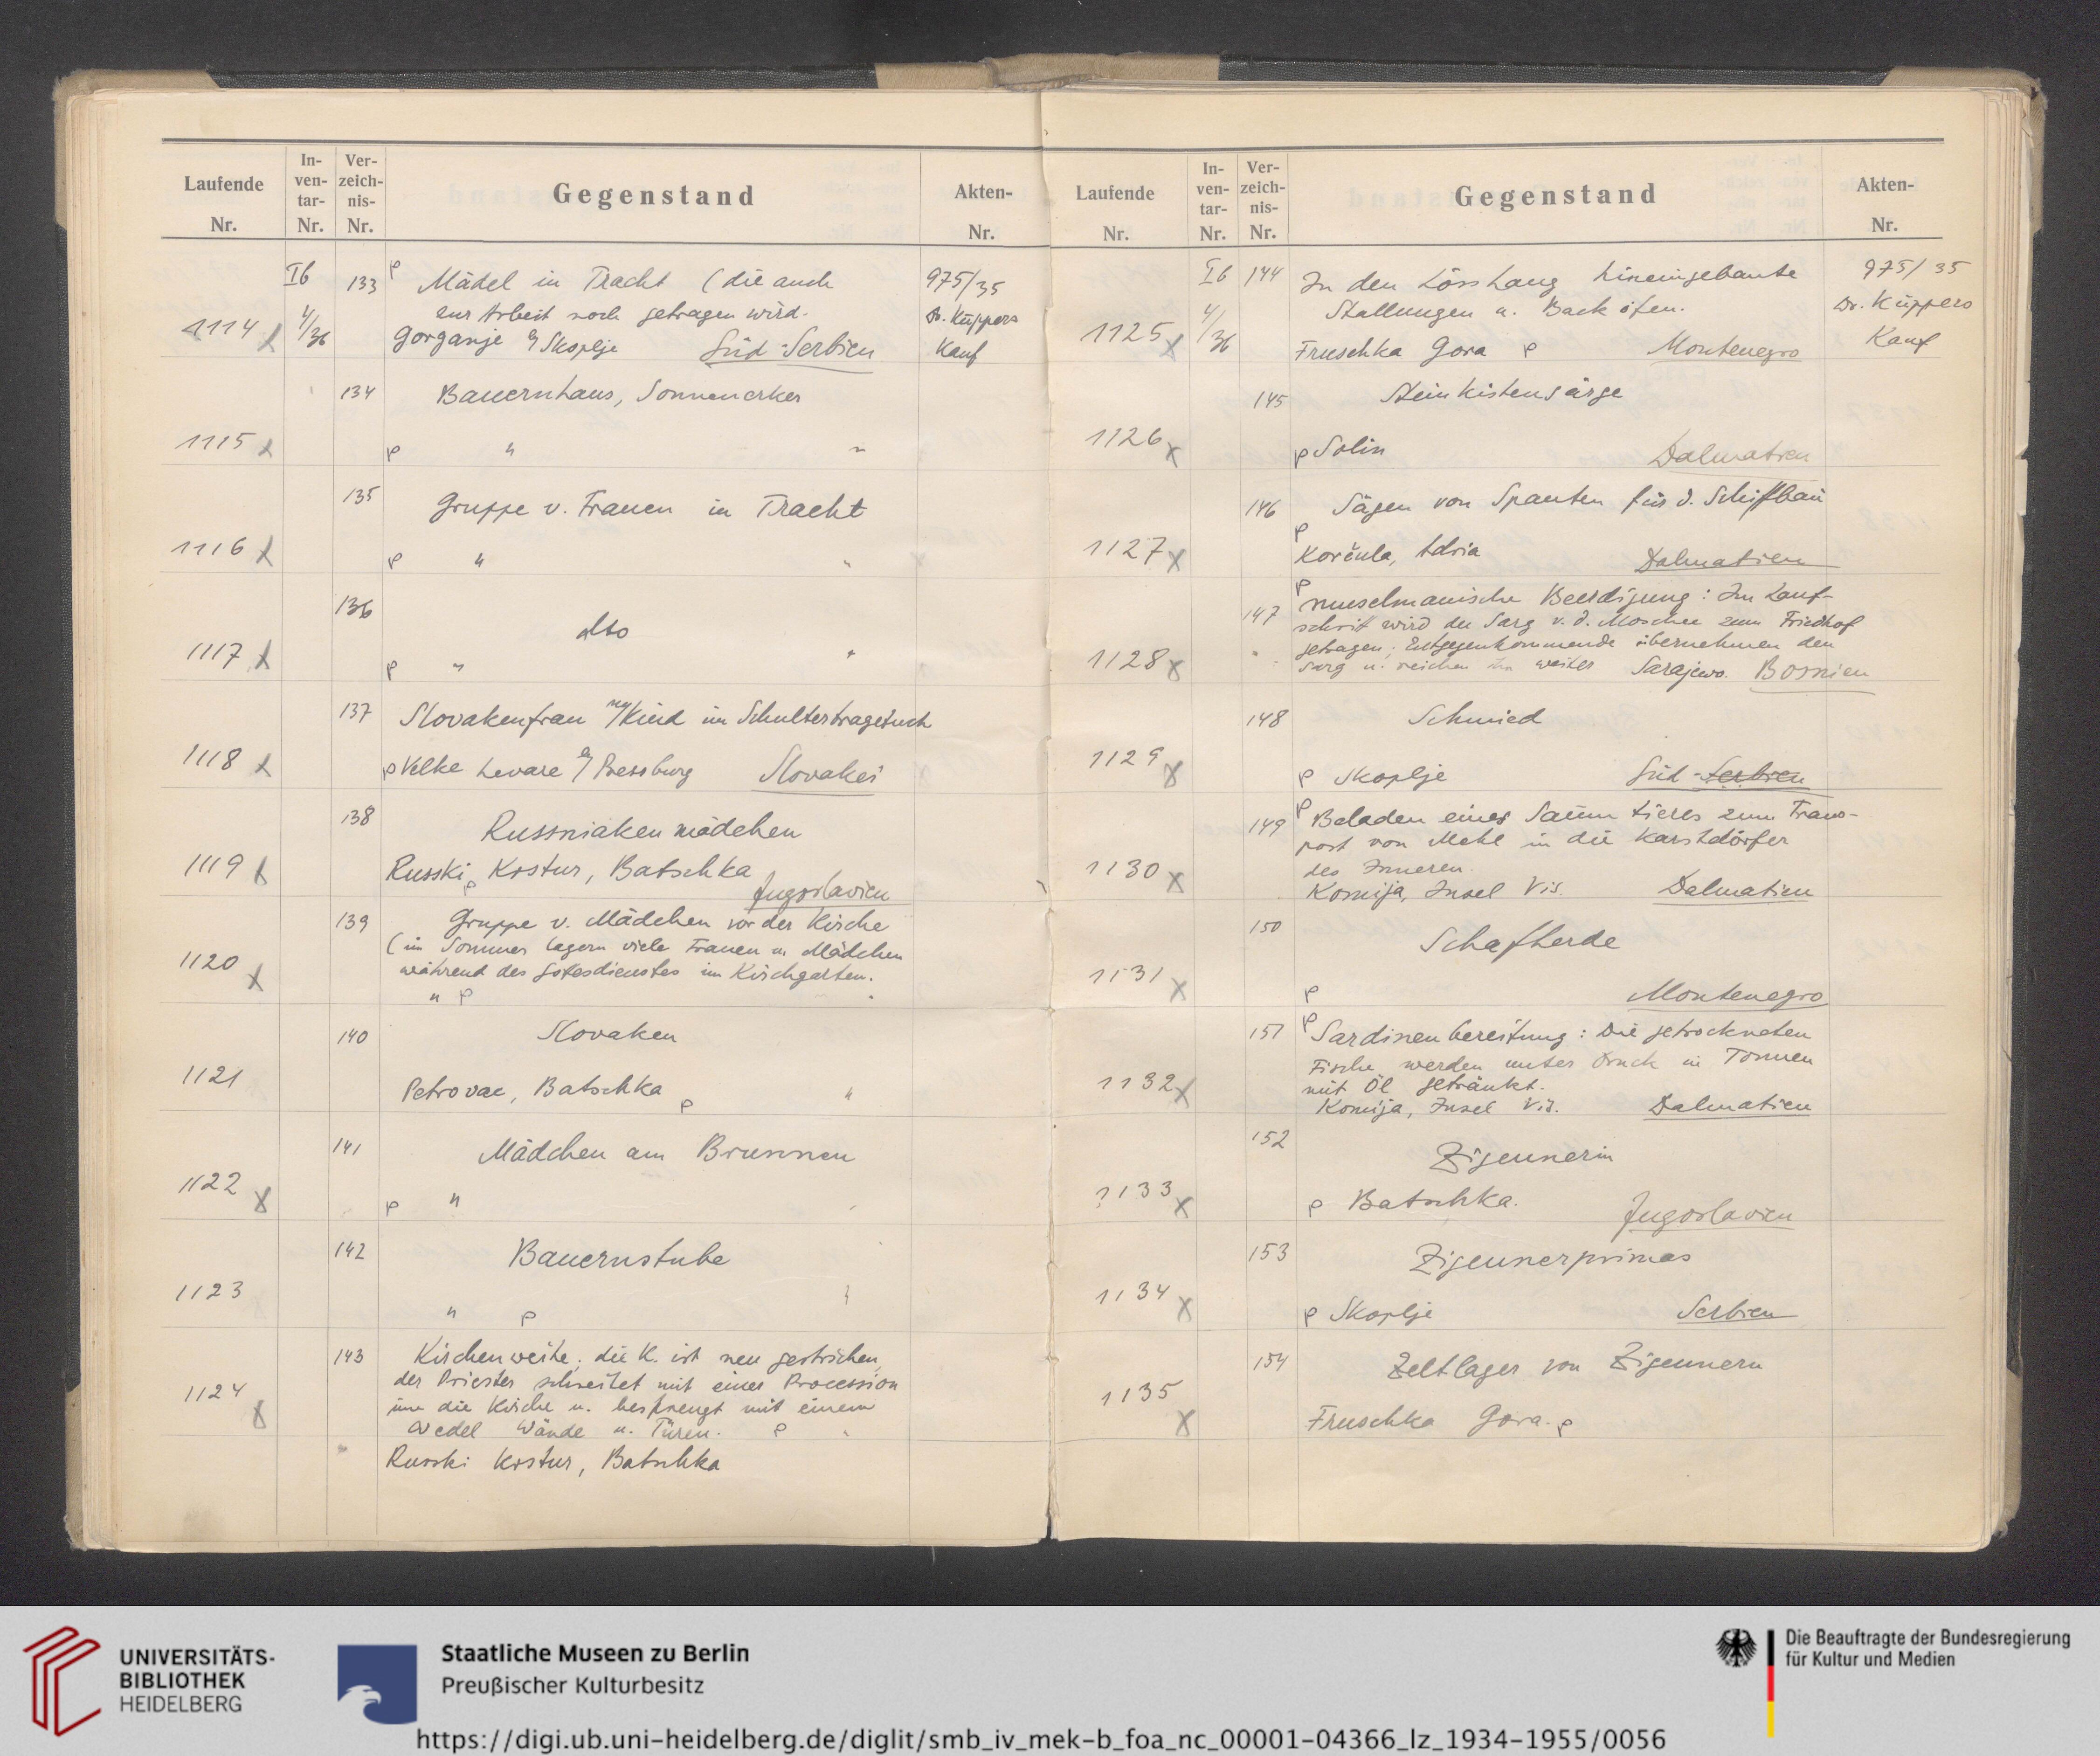 Laufende Nr.
In-ven-tar-Nr.
Ver-zeich-nis-Nr.
Gegenstand
Akten-Nr.
1114 x
Ib 4/36
133
Mädel in Tracht (die auch
zur Arbeit noch getragen wird.
Gorganje b/Skoplje Süd-Serbien
975/35
Dr. Küppers
Kauf
1115 x
134
Bauernhaus, Sonnenerker
" "
1116 x
135
Gruppe v. Frauen in Tracht
" "
1117 x
136
dto
" "
1118 x
137
Slovakenfrau m/Kind im Schultertragetuch
Velke Levare b/Pressburg Slovakei
1119 x
138
Russniakenmädchen
Russki Kostur, Batschka
Jugoslavien
1120 x
139
Gruppe v. Mädchen vor der Kirche
(im Sommer lagern viele Frauen u. Mädchen
während des Gotesdienstes im Kirchgarten.
" "
1121
140
Slovaken
Petrovac, Batschka "
1122 x
141
Mädchen am Brunnen
"
1123
142
Bauernstube
" "
1124 x
143
Kirchenweihe; die K. ist neu gestrichen,
der Priester schreitet mit einer Procession
um die Kirche u. besprengt mit einem
Wedel Wände u. Türen. "
Russki Kostur, Batschka
Laufende Nr.
In-ven-tar-Nr.
Ver-zeich-nis-Nr.
Gegenstand
Akten-Nr.
1125 x
Ib 4/36
144
In den Lösshang hineingebaute
Stallungen u. Backöfen.
Fruschka Gora Montenegro
975/35
Dr. Küppers
Kauf
1126 x
145
Steinkistensärge
Solin Dalmatien
1127 x
146
Sägen von Spanten für d. Schiffbau
Korčula, Adria Dalmatien
1128 x
147
muselmanische Beerdigung: Im Lauf-
schrit wird der Sarg v. d. Moschee zum Friedhof
getragen; Entgegenkommende übernehmen den
Sarg u. reichen ihn weiter Sarajewo. Bosnien
1129 x
148
Schmied
Skoplje Süd-Serbien
1130 x
149
Beladen eines Saumtieres zum Trans-
port von Mehl in die Karstdörfer
des Inneren.
Komija, Insel Vis. Dalmatien
1131 x
150
Schafherde
Montenegro
1132 x
151
Sardinenbereitung: Die getrockneten
Fische werden unter Druck in Tonnen
mit Öl getränkt.
Komija, Insel Vis. Dalmatien
1133 x
152
Zigeunerin
Batschka. Jugoslavien
1134 x
153
Zigeunerprimas
Skoplje Serbien
1135 x
154
Zeltlager von Zigeunern
Fruschka Gora.
UNIVERSITÄTS-
BIBLIOTHEK
HEIDELBERG
Staatliche Museen zu Berlin
Preußischer Kulturbesitz
Die Beauftragte der Bundesregierung
für Kultur und Medien
https://digi.ub.uni-heidelberg.de/diglit/smb_iv_mek-b_foa_nc_00001-04366_lz_1934-1955/0056